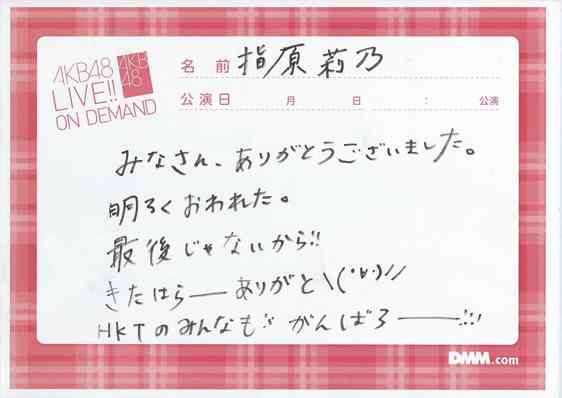 AKB48
LIVE!!
ON DEMAND
AKB
48
名前 指原莉乃
公演日 月 日 : 公演
みなさん、ありがとうございました。
明るくおわれた。
最後じゃないから!!
きたはらーーありがと\(°∀°)//
HKTのみんなも!! がんばろーーー!!!
DMM.com